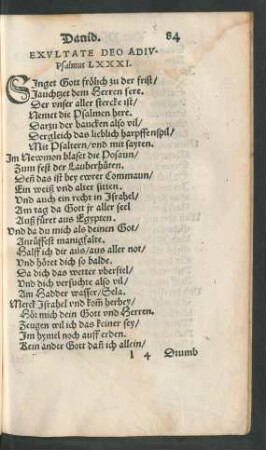 Dauid. 84
EXVLTATE DEO ADIV-
Psalmus LXXXI.
SInget Gott frölich zu der frist/
Jauchtzet dem Herren sere.
Der vnser aller stercke ist/
Nemet die Psalmen here.
Darzu der baucken also vil/
Dergleich das lieblich harpffenspil/
Mit Psaltern/vnd mit sayten.
Im Newmon blaset die Posaun/
Zum fest der Lauberhüten.
Deñ das ist bey ewrer Commaun/
Ein weiß vnd alter sitten.
Vnd auch ein recht in Israhel/
Am tag da Gott jr aller seel
Auß füret aus Egypten.
Vnd da du mich als deinen Got/
Anrüffest manigfalte.
Halff ich dir aus/aus aller not/
Vnd höret dich so balde.
Da dich das wetter vberfiel/
Vnd dich versuchte also vil/
Am Hadder wasser/Sela.
Merck Israhel vnd kom̃ herbey/
Hör mich dein Gott vnd Herren.
Zeugen wil ich das keiner sey/
Im hymel noch auff erden.
Kein ander Gott dañ ich allein/
l 4 Drumb